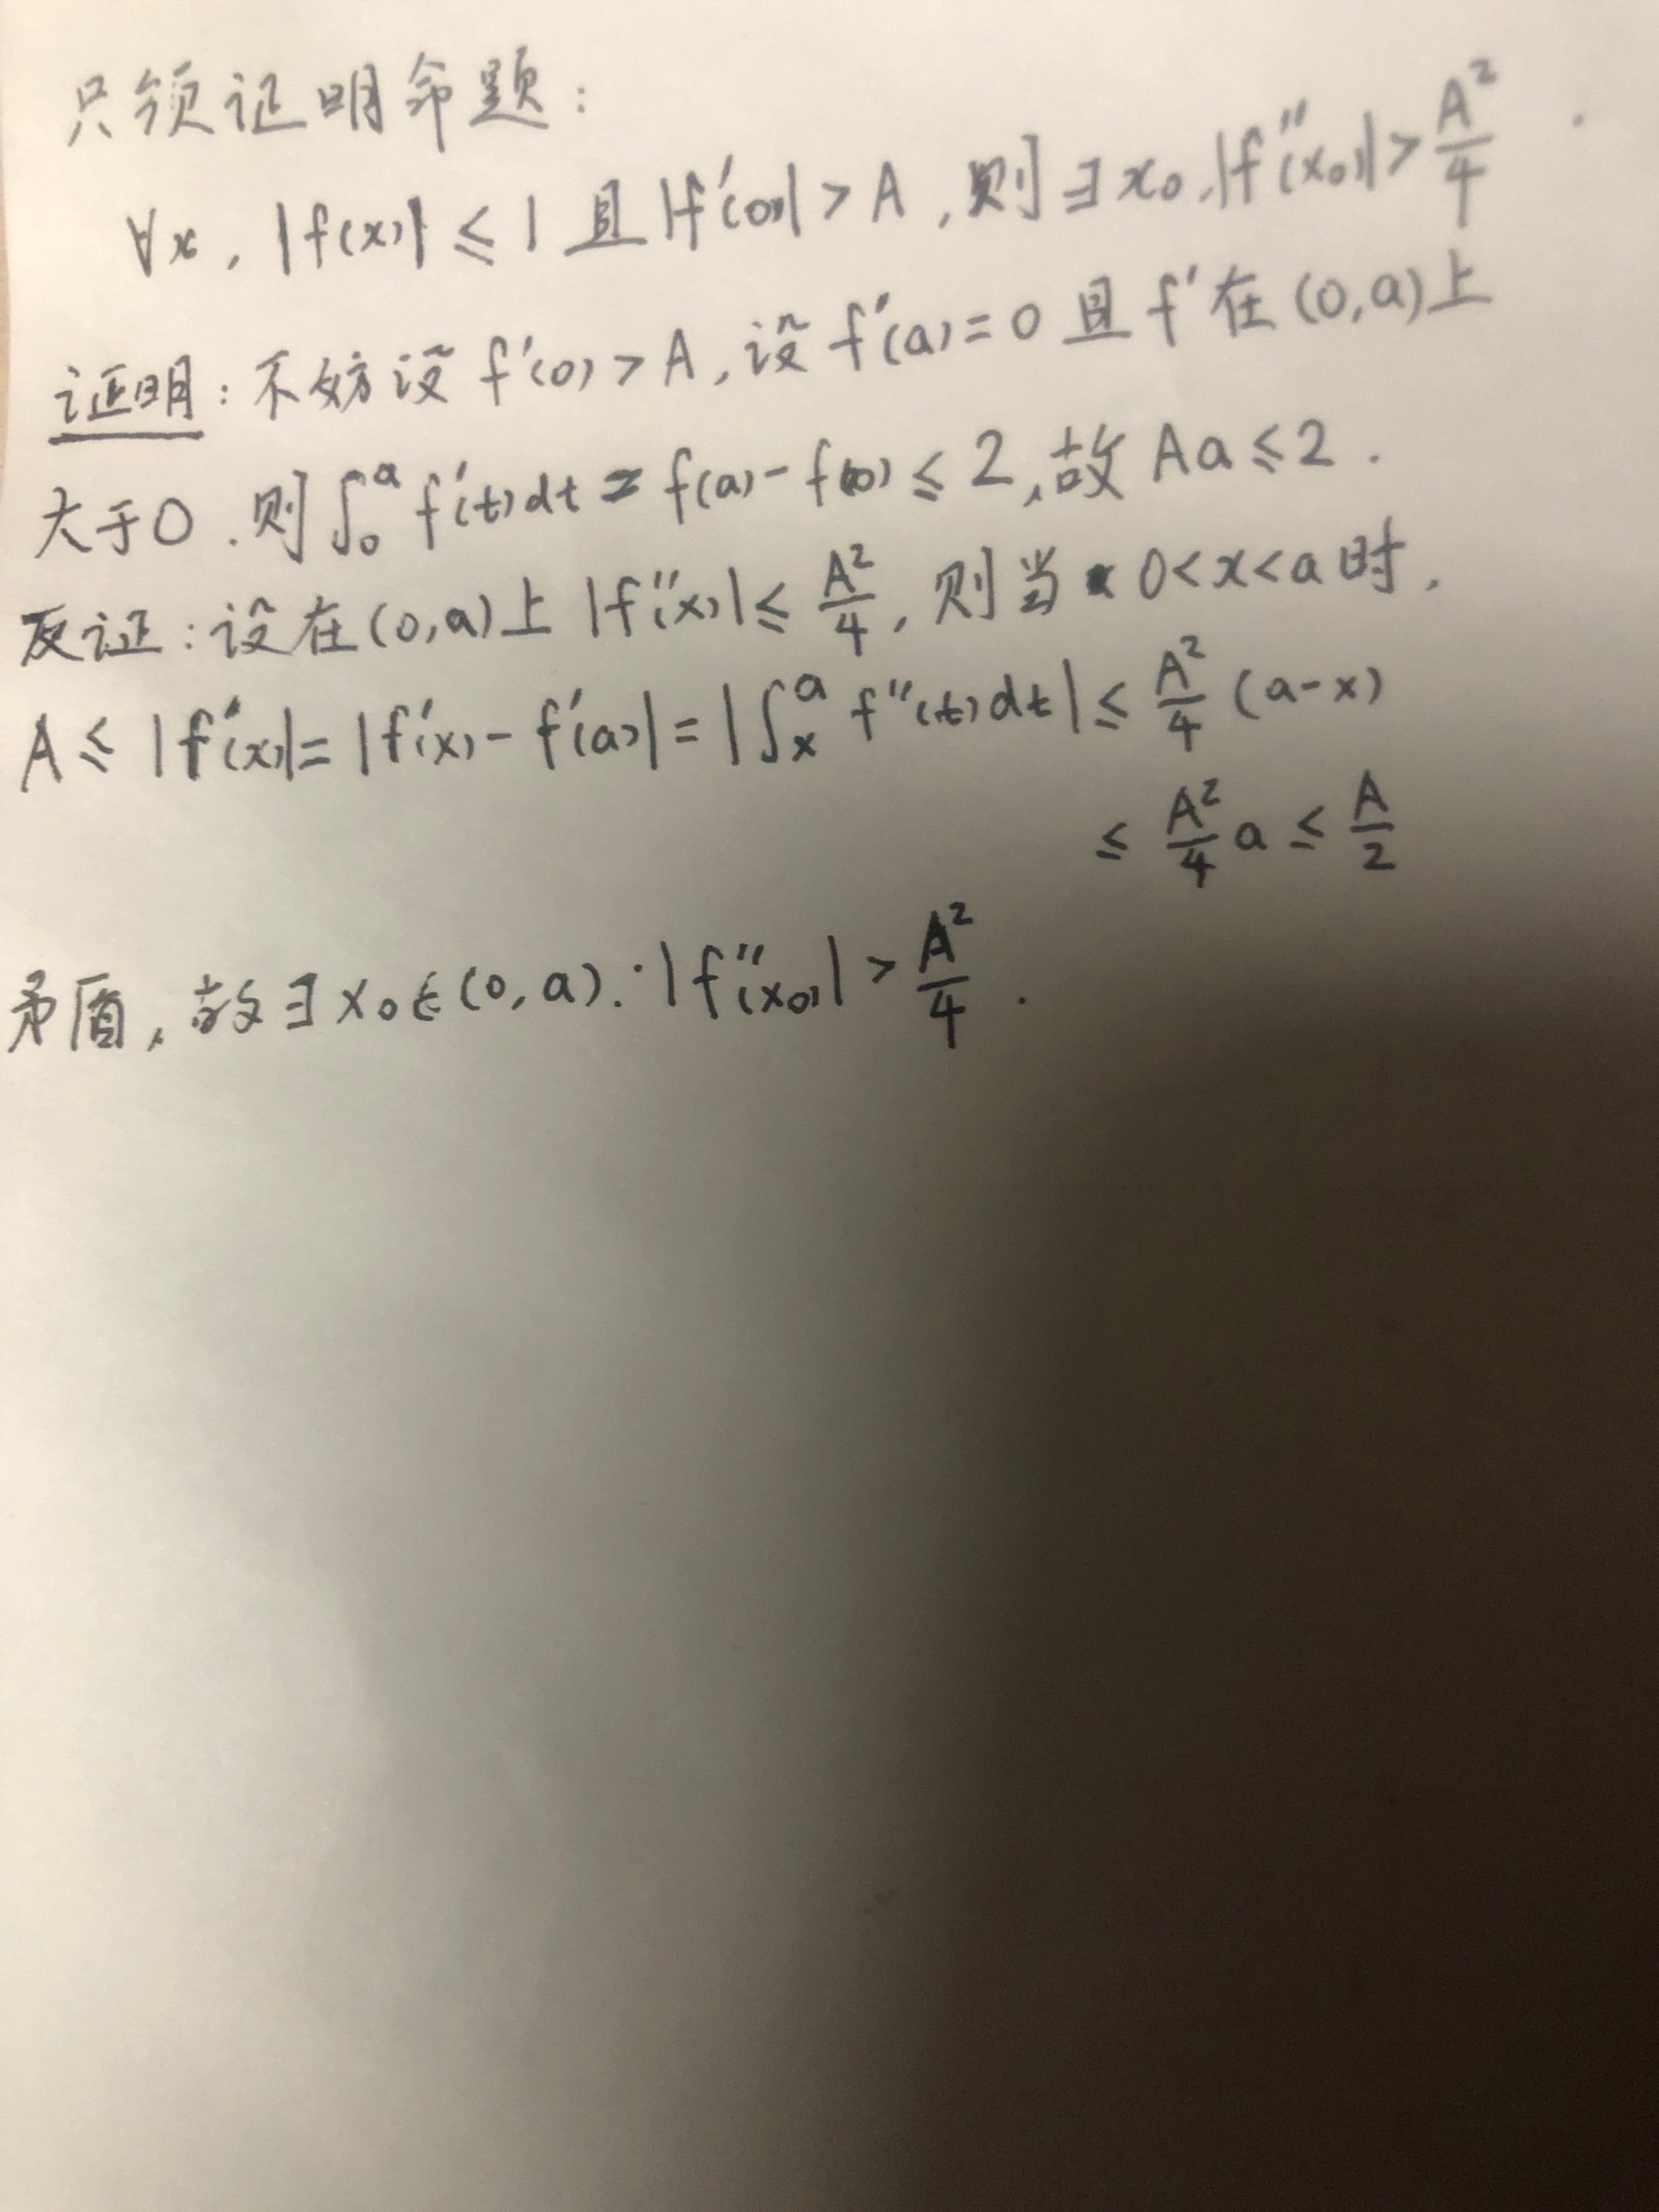 只须证明命题：
∀x，|f(x)| ≤ 1 且 |f'(0)| > A，则 ∃ x₀，|f''(x₀)| > A²/4 .
证明：不妨设 f'(0) > A，设 f'(a) = 0 且 f' 在 (0,a) 上
大于0 . 则 ∫₀ᵃ f'(t)dt = f(a) - f(0) ≤ 2，故 Aa ≤ 2 .
反证：设在(0,a)上 |f''(x)| ≤ A²/4，则当 0<x<a 时，
A ≤ |f'(x)| = |f'(x) - f'(a)| = |∫ₓᵃ f''(t)dt| ≤ A²/4 (a-x)
≤ A²/4 a ≤ A/2
矛盾，故 ∃ x₀ ∈ (0,a) : |f''(x₀)| > A²/4 .